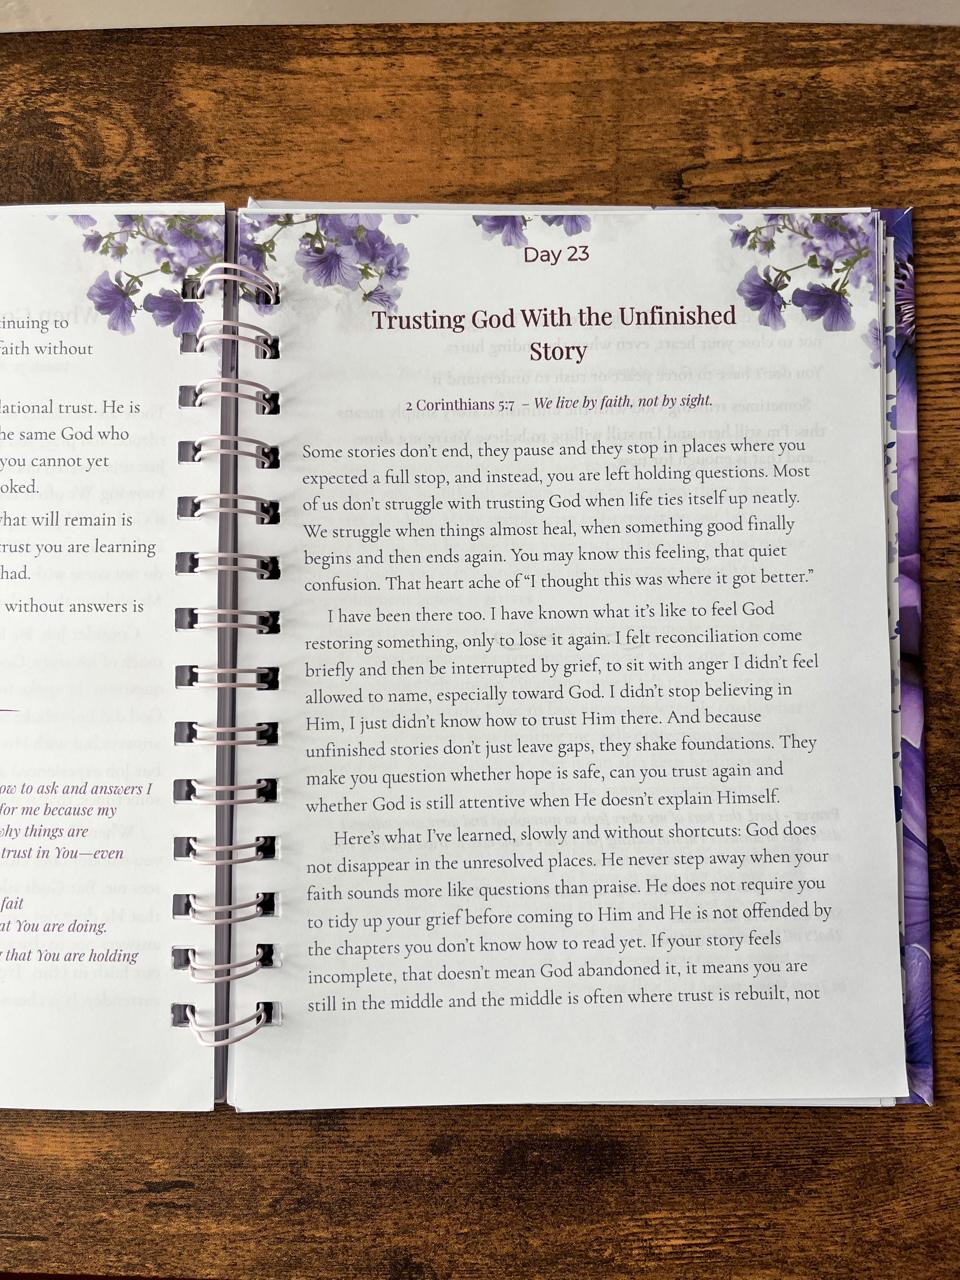 tinuing to
faith without
lational trust. He is
he same God who
you cannot yet
oked.
vhat will remain is
trust you are learning
had.
without answers is
ow to ask and answers I
for me because my
vhy things are
trust in You—even
fait
at You are doing.
that You are holding
Day 23
Trusting God With the Unfinished
Story
2 Corinthians 5:7 – We live by faith, not by sight.
Some stories don't end, they pause and they stop in places where you
expected a full stop, and instead, you are left holding questions. Most
of us don't struggle with trusting God when life ties itself up neatly.
We struggle when things almost heal, when something good finally
begins and then ends again. You may know this feeling, that quiet
confusion. That heart ache of “I thought this was where it got better.”
I have been there too. I have known what it's like to feel God
restoring something, only to lose it again. I felt reconciliation come
briefly and then be interrupted by grief, to sit with anger I didn't feel
allowed to name, especially toward God. I didn't stop believing in
Him, I just didn't know how to trust Him there. And because
unfinished stories don't just leave gaps, they shake foundations. They
make you question whether hope is safe, can you trust again and
whether God is still attentive when He doesn't explain Himself.
Here's what I've learned, slowly and without shortcuts: God does
not disappear in the unresolved places. He never step away when your
faith sounds more like questions than praise. He does not require you
to tidy up your grief before coming to Him and He is not offended by
the chapters you don't know how to read yet. If your story feels
incomplete, that doesn't mean God abandoned it, it means you are
still in the middle and the middle is often where trust is rebuilt, not